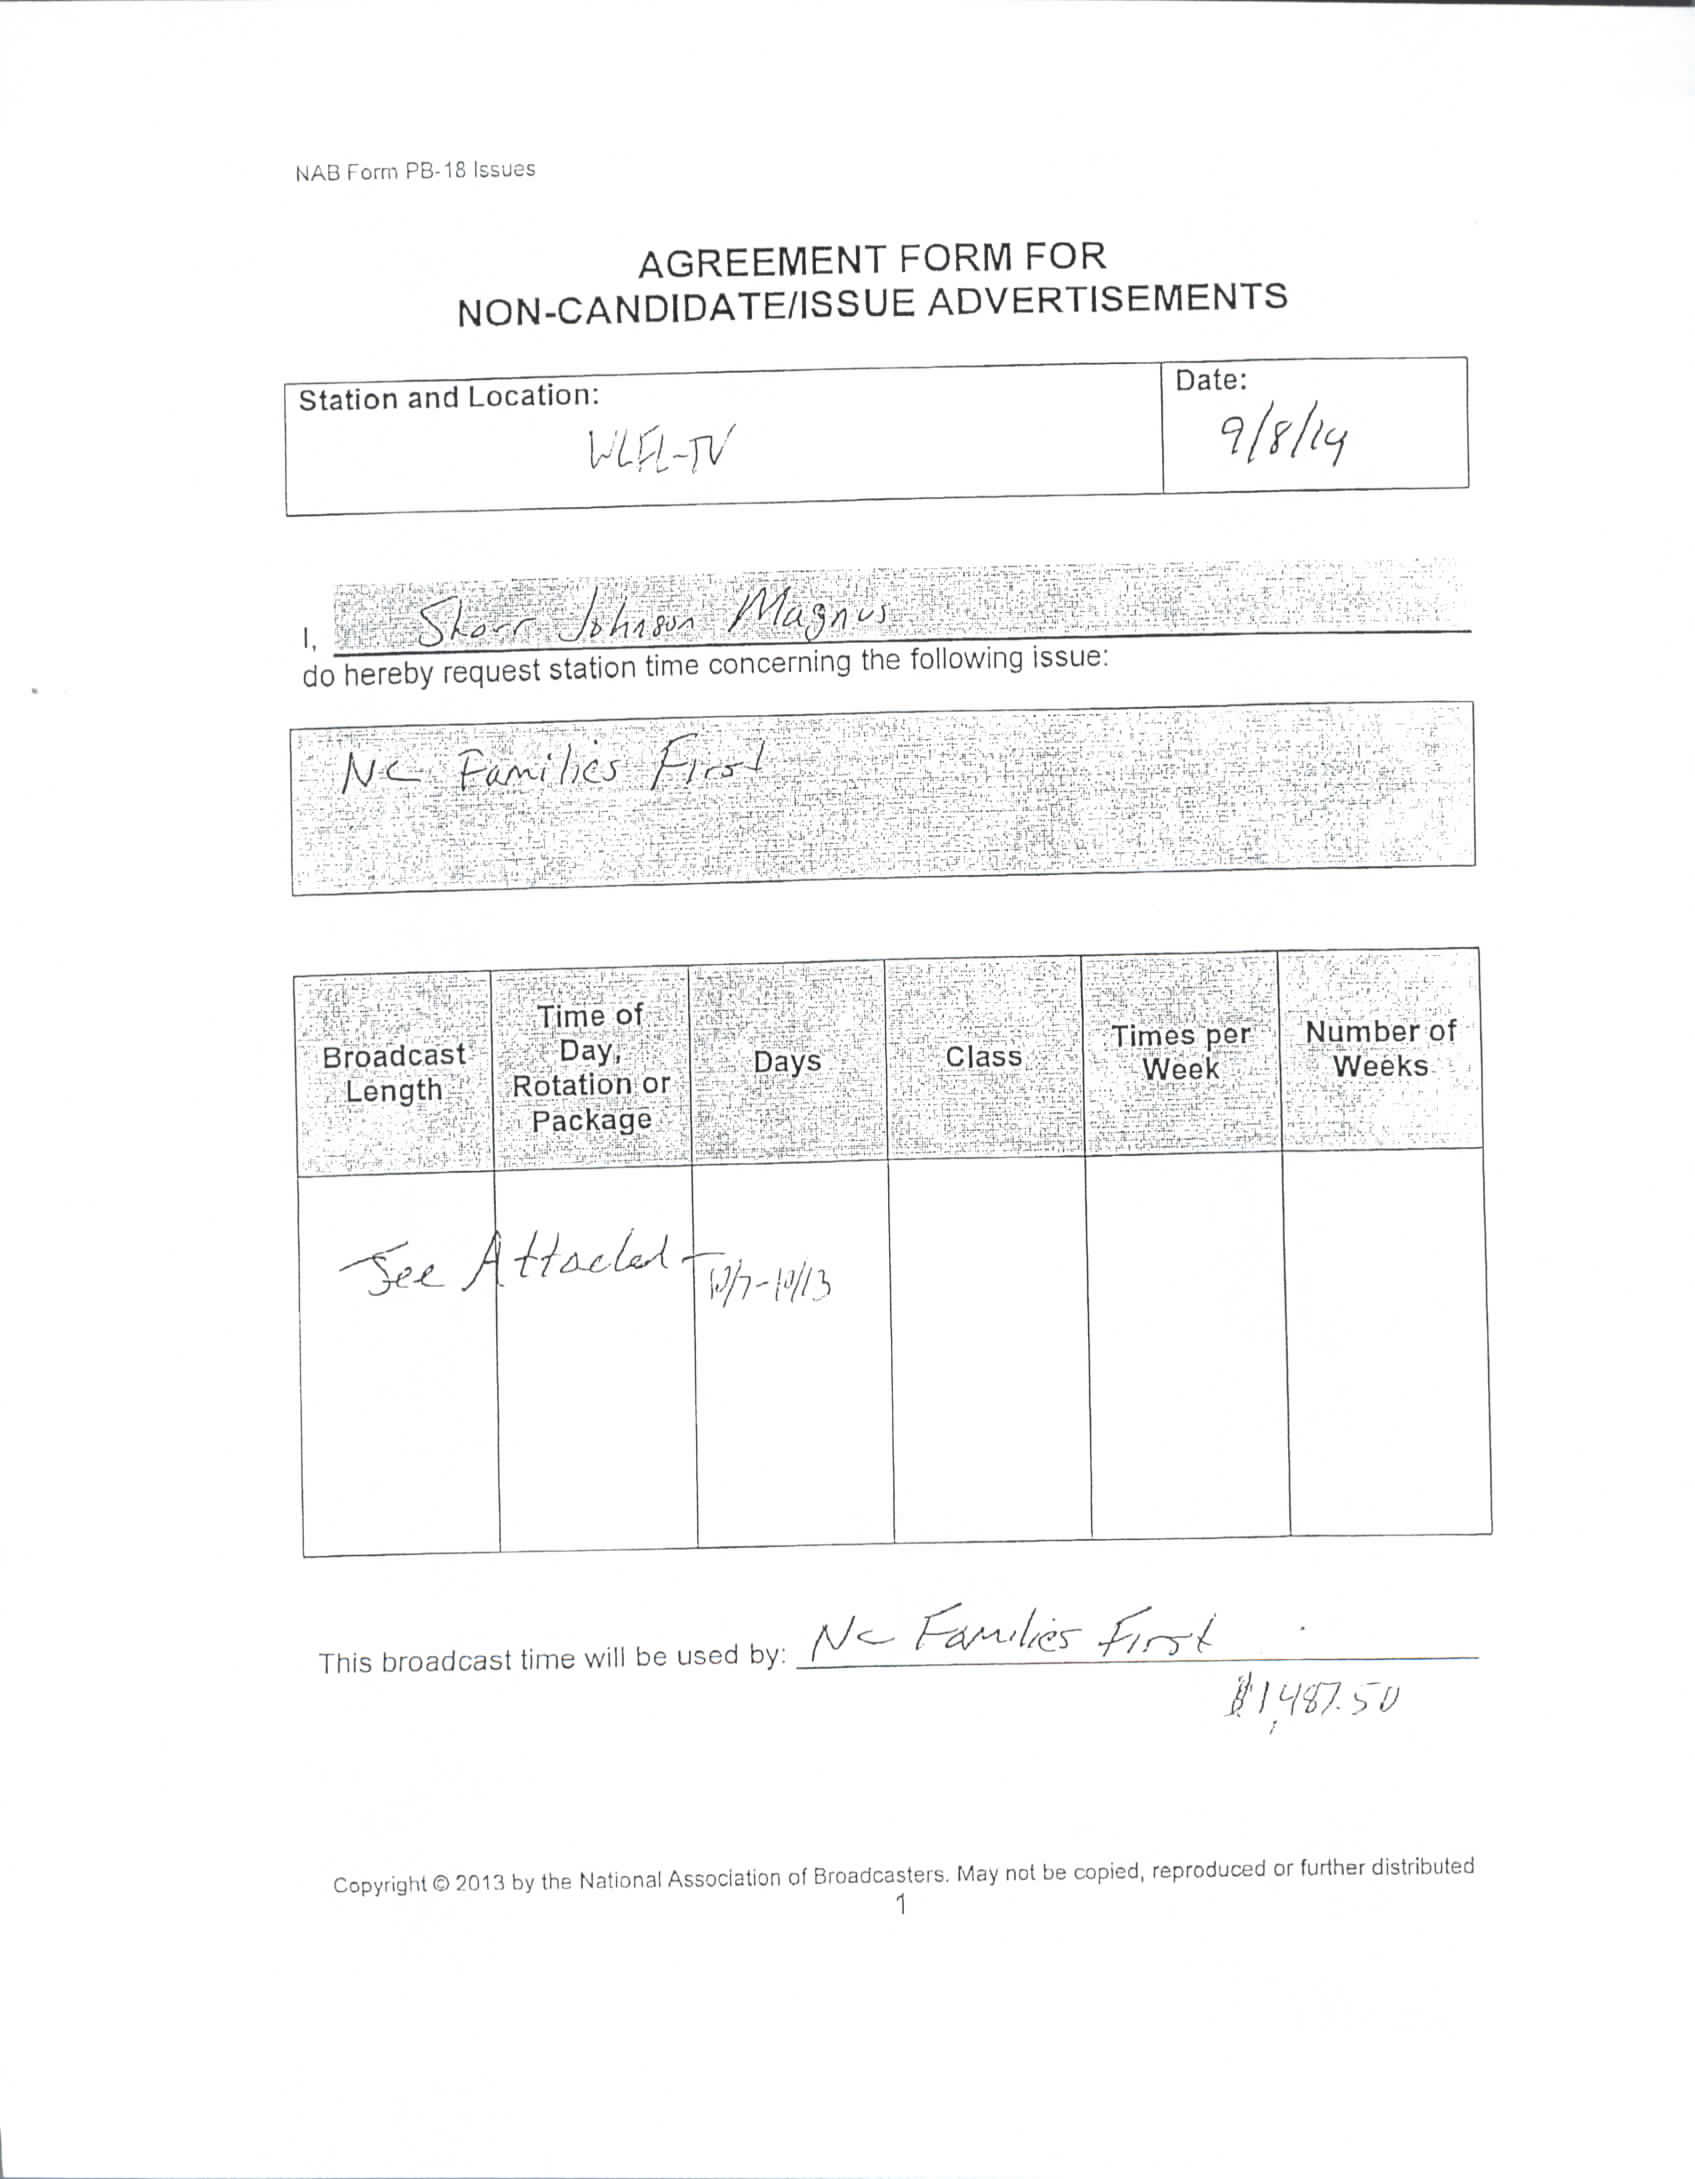 NAB Form PB-18 Issues
AGREEMENT FORM FOR
NON-CANDIDATE/ISSUE ADVERTISEMENTS
Station and Location:
WLFL-TV
Date:
9/8/14
I, Shorr Johnson Magnus
do hereby request station time concerning the following issue:
NC Families First
Broadcast Length
Time of Day, Rotation or Package
Days
Class
Times per Week
Number of Weeks
See Attached - 10/7-10/13
This broadcast time will be used by: NC Families First
$1,487.50
Copyright © 2013 by the National Association of Broadcasters. May not be copied, reproduced or further distributed
1